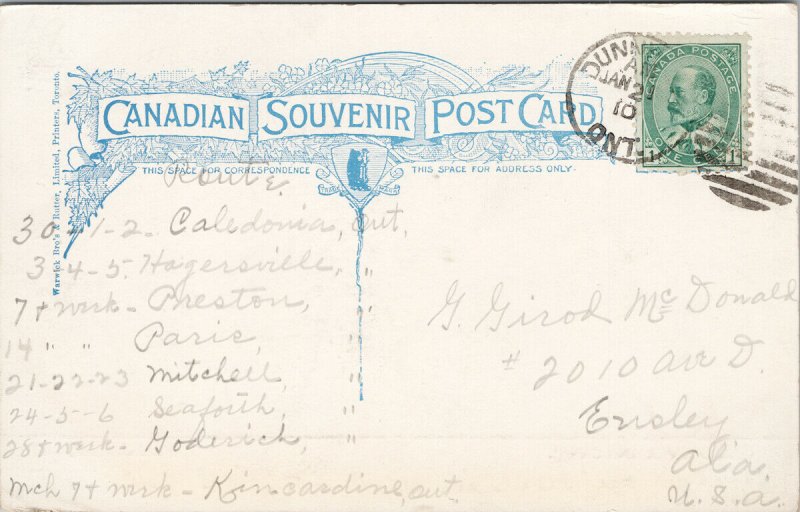 CANADIAN SOUVENIR POST CARD
THIS SPACE FOR CORRESPONDENCE
THIS SPACE FOR ADDRESS ONLY.
Warwick Bro's & Rutter, Limited, Printers, Toronto.
DUNN
JAN 2
10
ONT.
CANADA POSTAGE
1 ONE 1
Route
30 - 1-2 - Caledonia, Ont,
3 4-5. Hagersville, "
7 + week - Preston, "
14 " " Paris, "
21-22-23 Mitchell, "
24-5-6 Seaforth, "
28 + week - Goderich, "
Mch 7 + week - Kincardine, Ont.
G. Girod McDonald
# 2010 Ave D.
Ensley
Ala.
U.S.a.